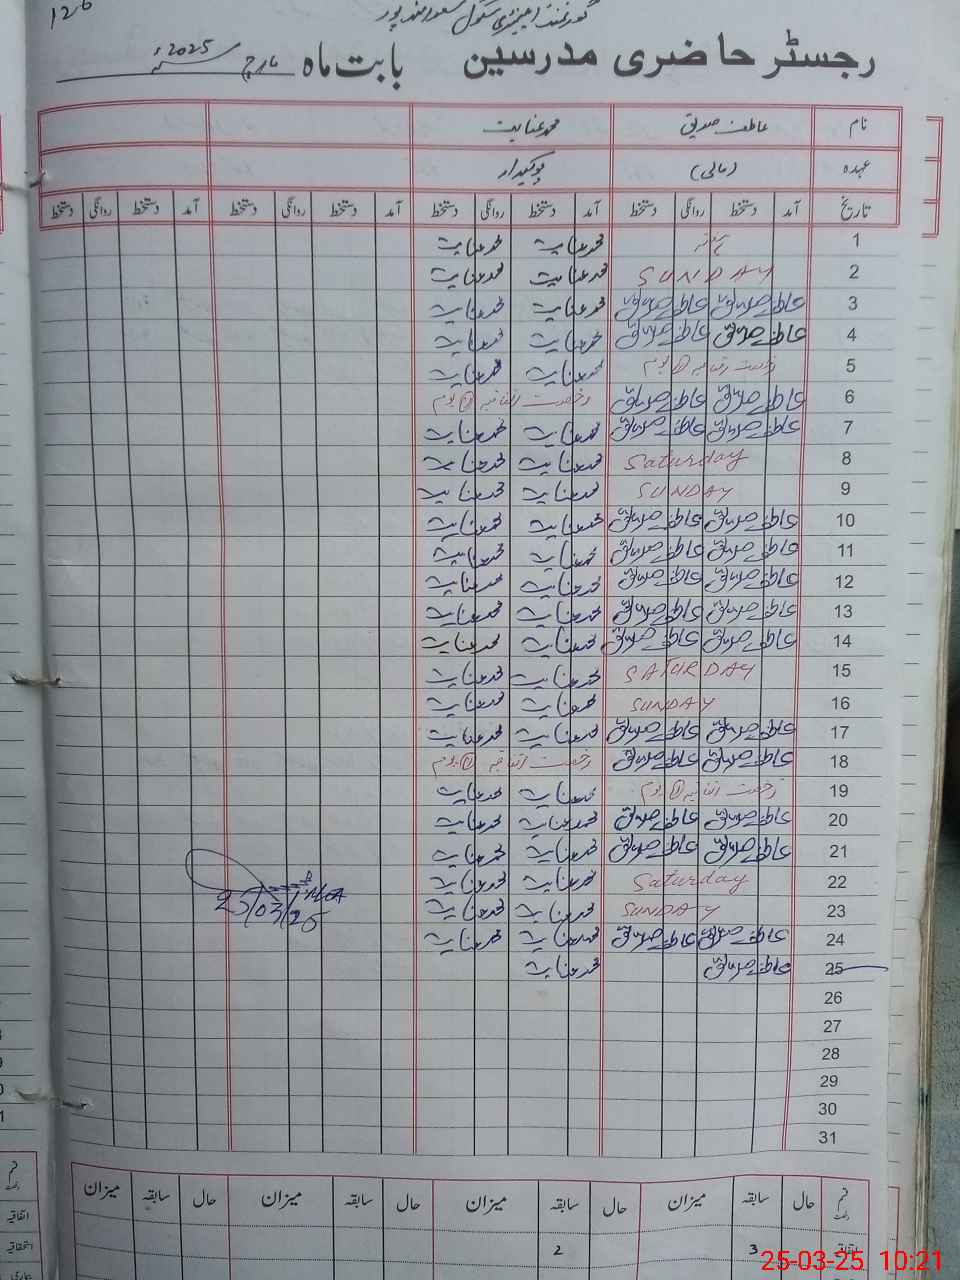 126
گورنمنٹ ایلیمنٹری سکول سعود مند پور
رجسٹر حاضری مدرسین بابت ماہ مارچ سنہ 2025ء
نام عاطف صدیق محمد عنایت
عہدہ (مالی) چوکیدار
تاریخ آمد دستخط روانگی دستخط آمد دستخط روانگی دستخط آمد دستخط روانگی دستخط آمد دستخط روانگی دستخط
1 محمد عنایت محمد عنایت
2 SUNDAY محمد عنایت محمد عنایت
3 عاطف صدیق عاطف صدیق محمد عنایت محمد عنایت
4 عاطف صدیق عاطف صدیق محمد عنایت محمد عنایت
5 رخصت اتفاقیہ ① یوم محمد عنایت محمد عنایت
6 عاطف صدیق عاطف صدیق رخصت اتفاقیہ ① یوم
7 عاطف صدیق عاطف صدیق محمد عنایت محمد عنایت
8 Saturday محمد عنایت محمد عنایت
9 SUNDAY محمد عنایت محمد عنایت
10 عاطف صدیق عاطف صدیق محمد عنایت محمد عنایت
11 عاطف صدیق عاطف صدیق محمد عنایت محمد عنایت
12 عاطف صدیق عاطف صدیق محمد عنایت محمد عنایت
13 عاطف صدیق عاطف صدیق محمد عنایت محمد عنایت
14 عاطف صدیق عاطف صدیق محمد عنایت محمد عنایت
15 SATURDAY محمد عنایت محمد عنایت
16 SUNDAY محمد عنایت محمد عنایت
17 عاطف صدیق عاطف صدیق محمد عنایت محمد عنایت
18 عاطف صدیق عاطف صدیق رخصت اتفاقیہ ① یوم
19 رخصت اتفاقیہ ① یوم محمد عنایت محمد عنایت
20 عاطف صدیق عاطف صدیق محمد عنایت محمد عنایت
21 عاطف صدیق عاطف صدیق محمد عنایت محمد عنایت
22 Saturday محمد عنایت محمد عنایت
23 SUNDAY محمد عنایت محمد عنایت
25/03/25
24 عاطف صدیق عاطف صدیق محمد عنایت محمد عنایت
25 عاطف صدیق محمد عنایت
26
27
28
29
30
31
قسم رخصت حال سابقہ میزان حال سابقہ میزان حال سابقہ میزان حال سابقہ میزان
اتفاقیہ 3 2
25-03-25 10:21